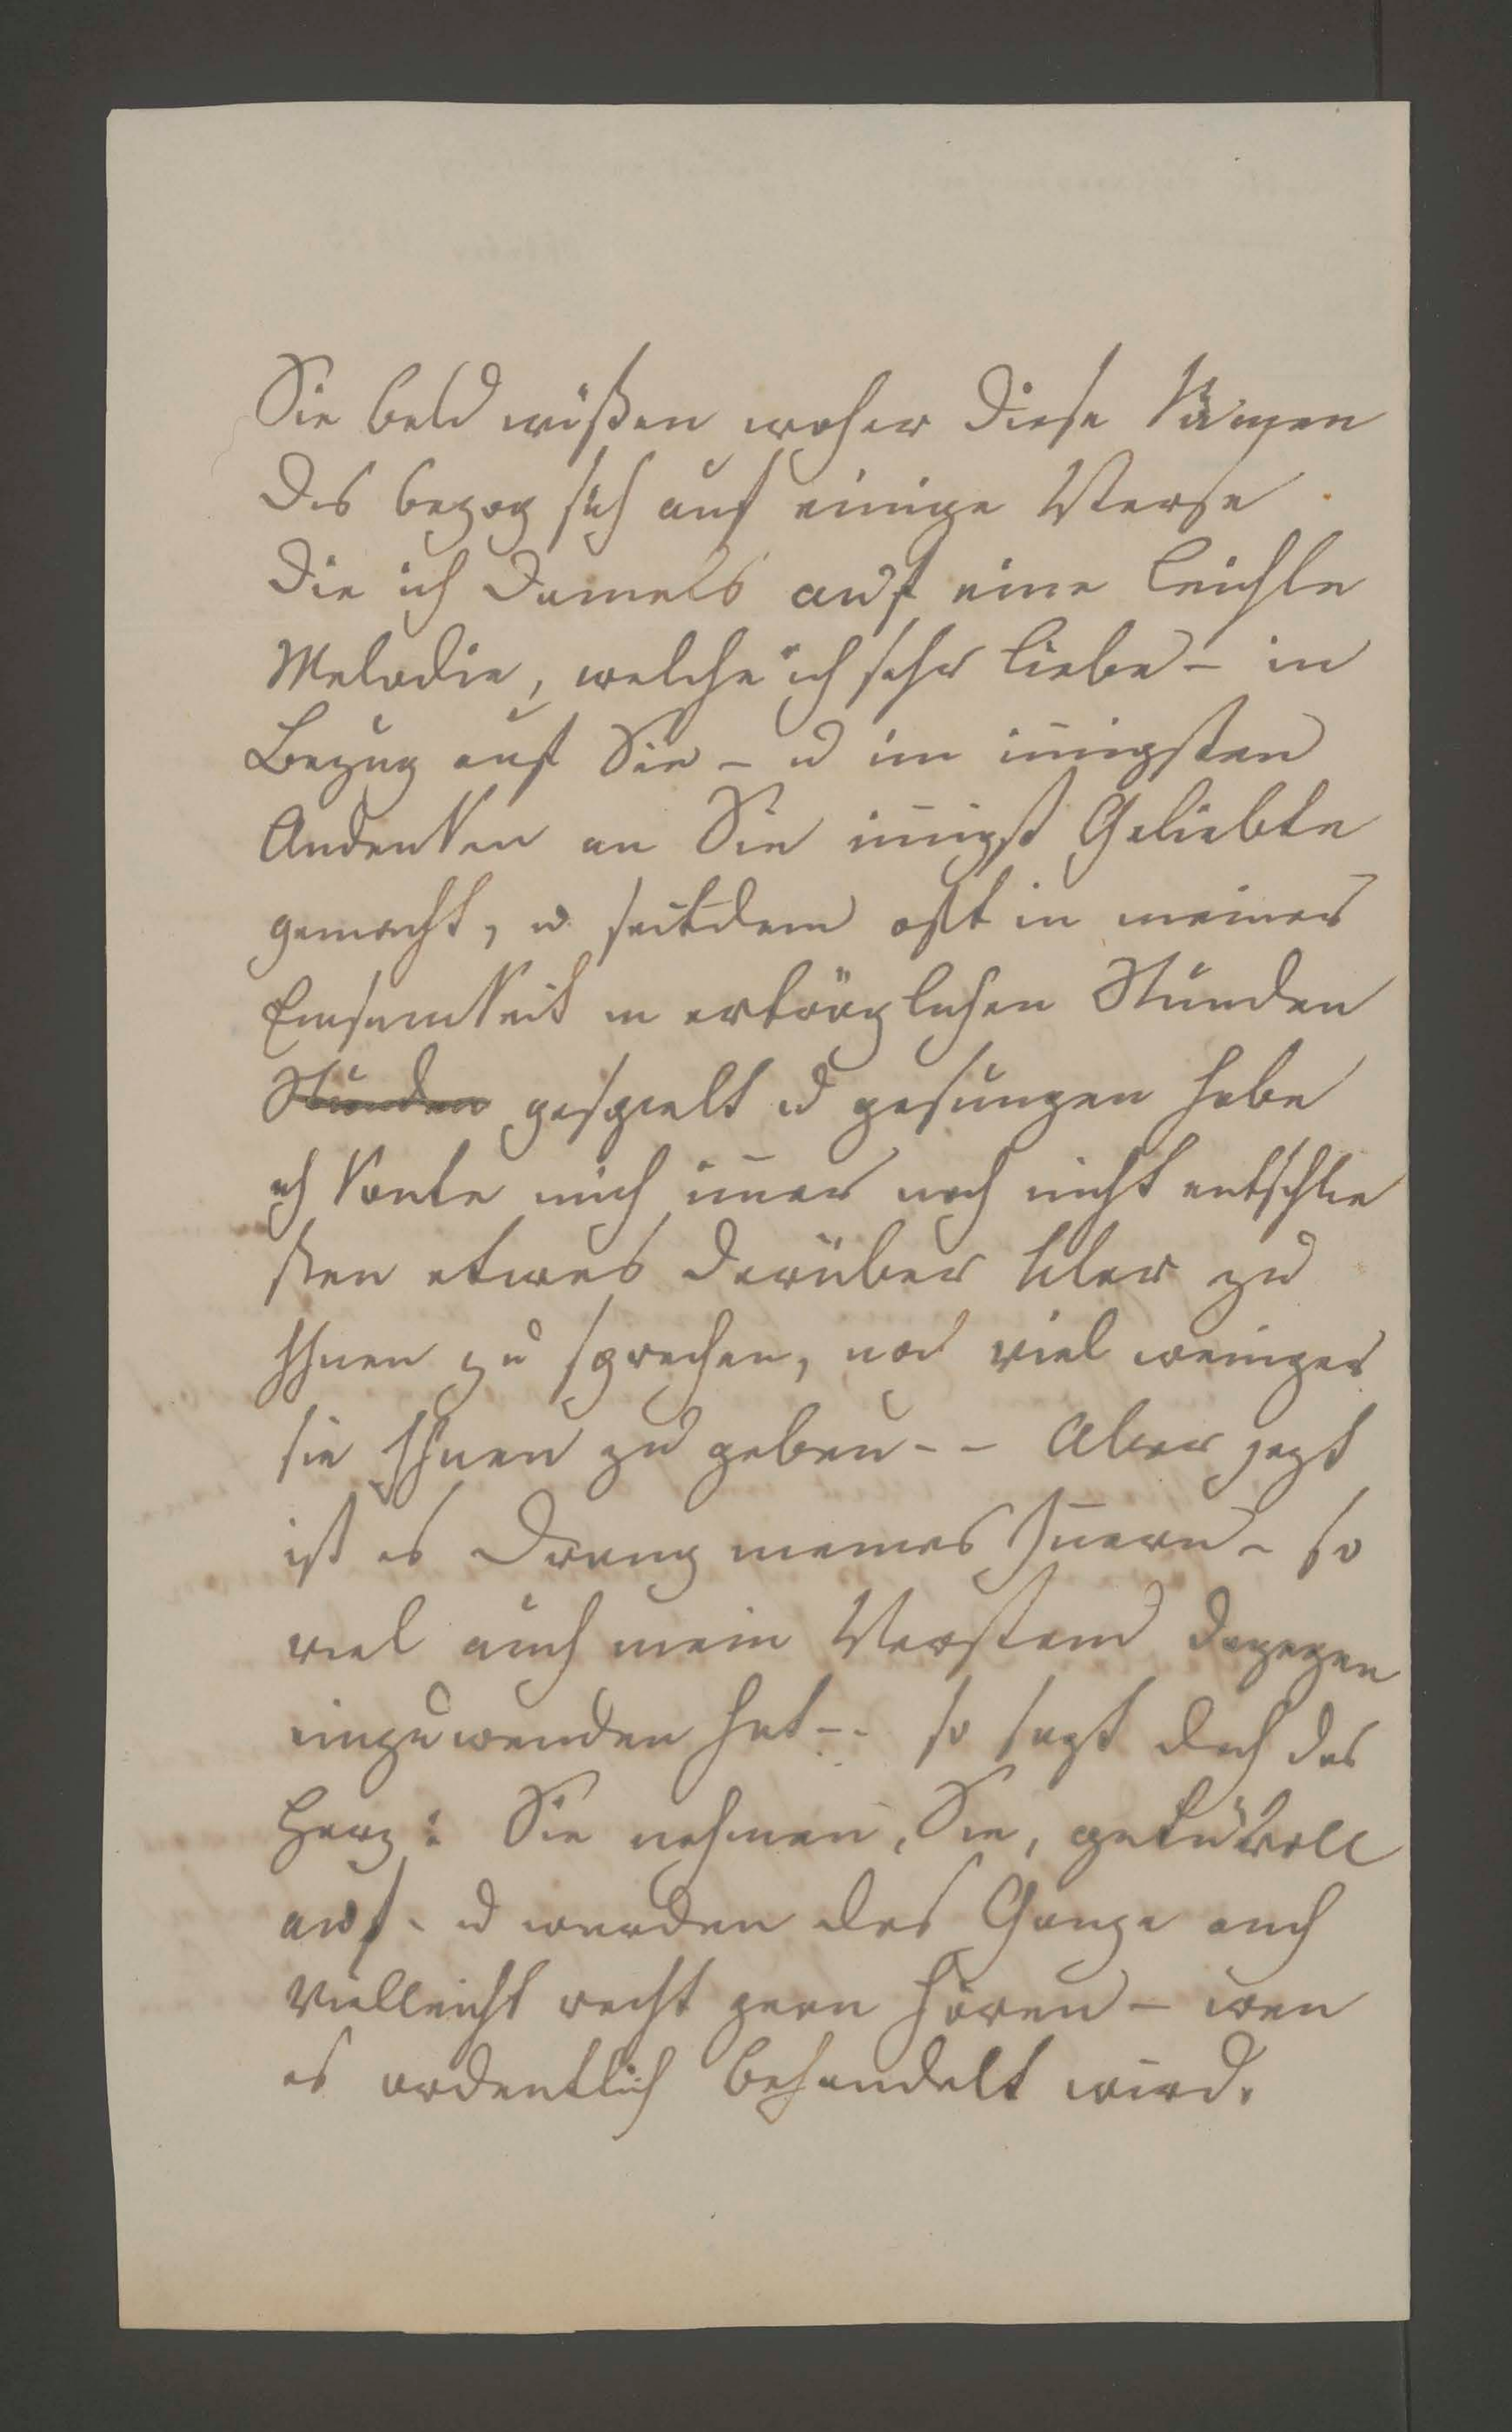 Sie bald wüßen woher diese kämen
das bezog sich auf einige Verse
die ich damals auf eine leichte
Melodie, welche ich sehr liebe – in
Bezug auf Sie – u im iñigsten
Andenken an Sie iñigst Geliebte
gemacht, u. seitdem oft in meiner
Einsamkeit in erträglichen Stunden
Stunden gespielt u gesungen habe
ich konte mich im̄er noch nicht entschlie
ßen etwas darüber klar zu
Ihnen zu sprechen, noch viel weniger
sie Ihnen zu geben - - Aber jezt
ist es Drang meines Iñern – so
viel auch mein Verstand dagegen
einzuwenden hat - - so sagt doch das
Herz: Sie nehmen, Sie,
auf - u werden das Ganze auch
vielleicht recht gern hören – wen
es ordentlich behandelt wird.